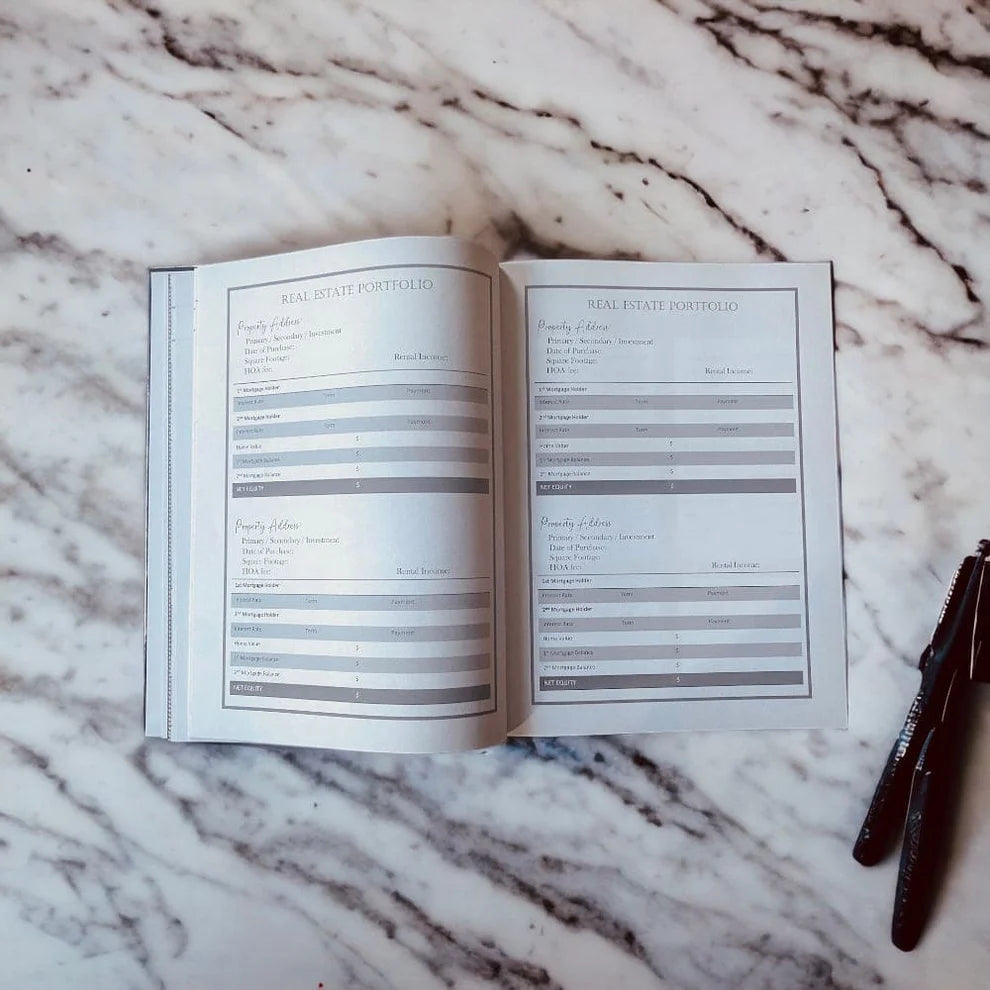 REAL ESTATE PORTFOLIO
Property Address:
Primary / Secondary / Investment
Date of Purchase:
Square Footage:
HOA fee: Rental Income:
1st Mortgage Holder
Interest Rate Term Payment
2nd Mortgage Holder
Interest Rate Term Payment
Home Value $
1st Mortgage Balance $
2nd Mortgage Balance $
NET EQUITY $
Property Address:
Primary / Secondary / Investment
Date of Purchase:
Square Footage:
HOA fee: Rental Income:
1st Mortgage Holder
Interest Rate Term Payment
2nd Mortgage Holder
Interest Rate Term Payment
Home Value $
1st Mortgage Balance $
2nd Mortgage Balance $
NET EQUITY $
REAL ESTATE PORTFOLIO
Property Address:
Primary / Secondary / Investment
Date of Purchase:
Square Footage:
HOA fee: Rental Income:
1st Mortgage Holder
Interest Rate Term Payment
2nd Mortgage Holder
Interest Rate Term Payment
Home Value $
1st Mortgage Balance $
2nd Mortgage Balance $
NET EQUITY $
Property Address:
Primary / Secondary / Investment
Date of Purchase:
Square Footage:
HOA fee: Rental Income:
1st Mortgage Holder
Interest Rate Term Payment
2nd Mortgage Holder
Interest Rate Term Payment
Home Value $
1st Mortgage Balance $
2nd Mortgage Balance $
NET EQUITY $